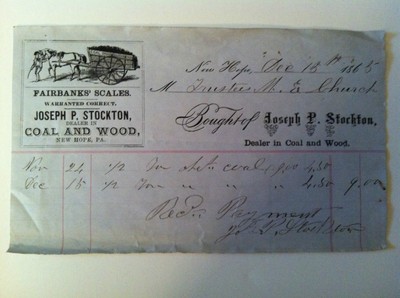 FAIRBANKS' SCALES.
WARRANTED CORRECT.
JOSEPH P. STOCKTON,
DEALER IN
COAL AND WOOD,
NEW HOPE, PA.
New Hope, Dec 18th 1865
M Trustees M. E Church
Bought of Joseph P. Stockton,
Dealer in Coal and Wood.
Nov 24 1/2 Ton coal 9,00 4,50
Dec 15 1/2 Ton " " " 4,50 9,00
Recd Payment
J. P. Stockton